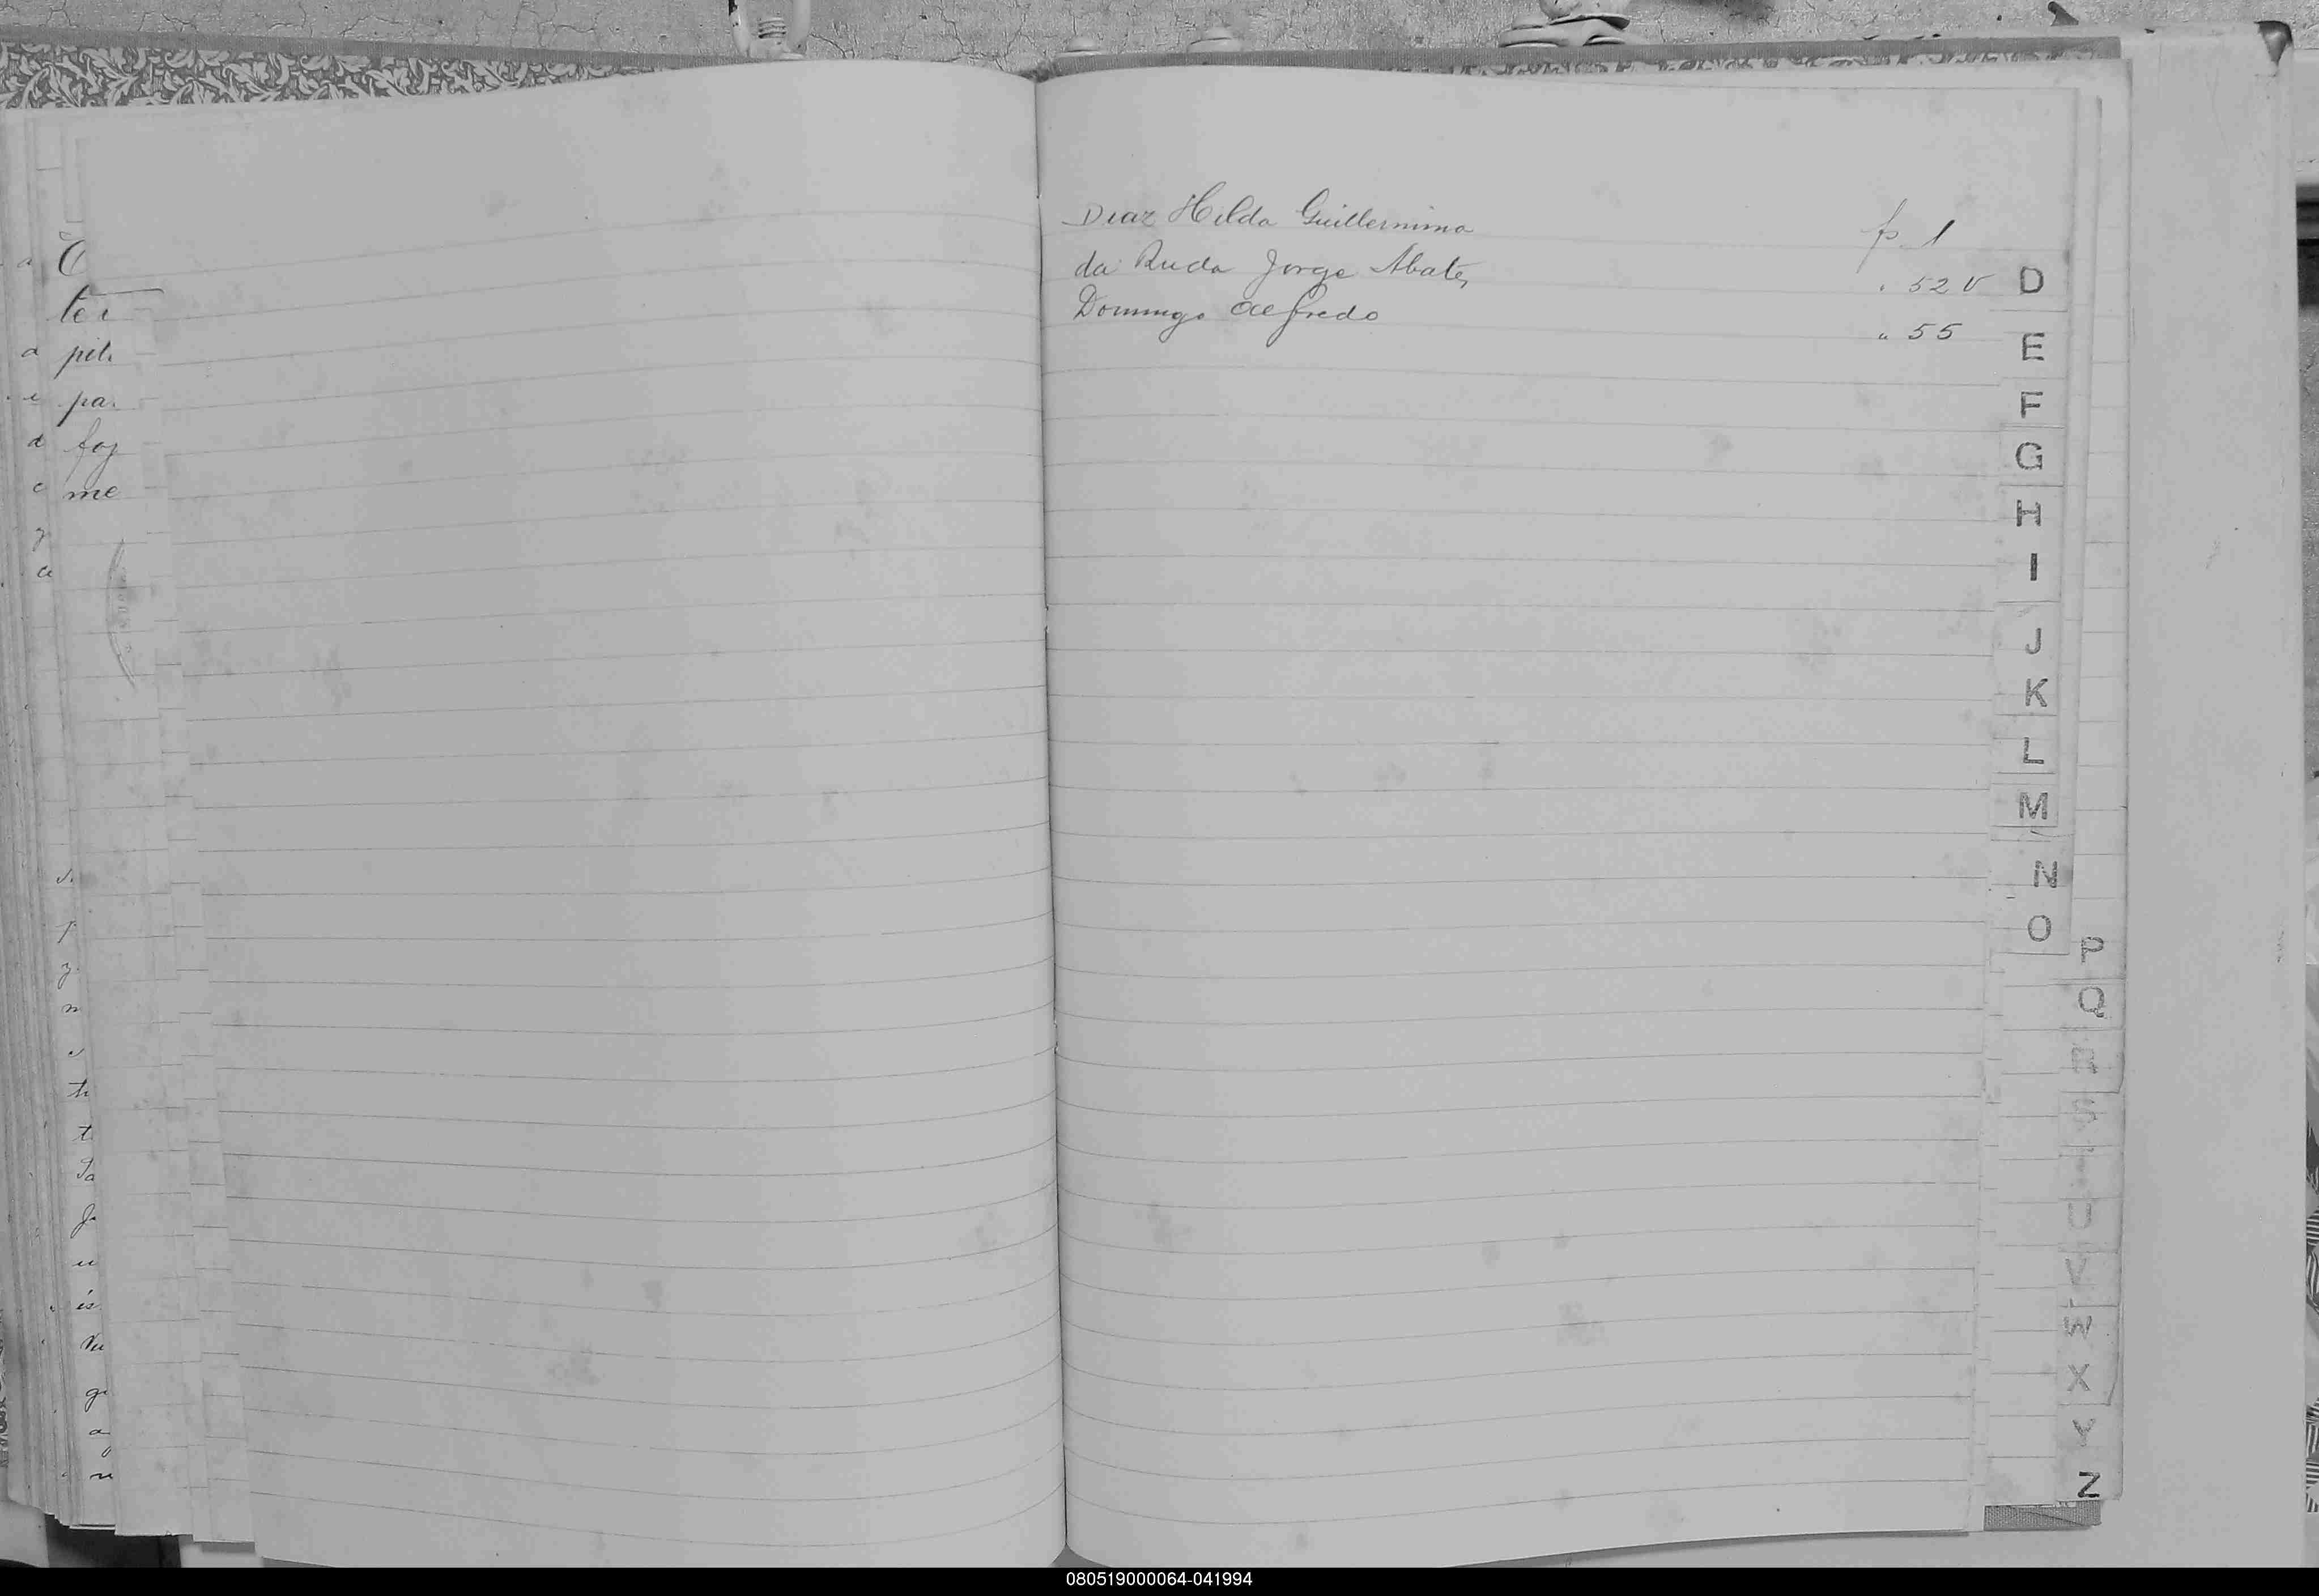 Diaz Hilda Guillermina fs 1
da Ruda Jorge Abate, " 52 v
Domingo Alfredo " 55
D
E
F
G
H
I
J
K
L
M
N
O
P
Q
R
S
U
V
W
X
Y
Z
ter
pa.
foj
me
080519000064-041994